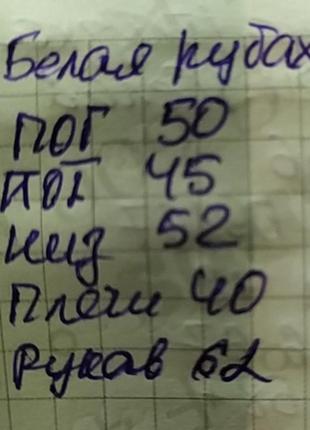 Белая рубах
ПОГ 50
ПОТ 45
низ 52
Плечи 40
Рукав 62